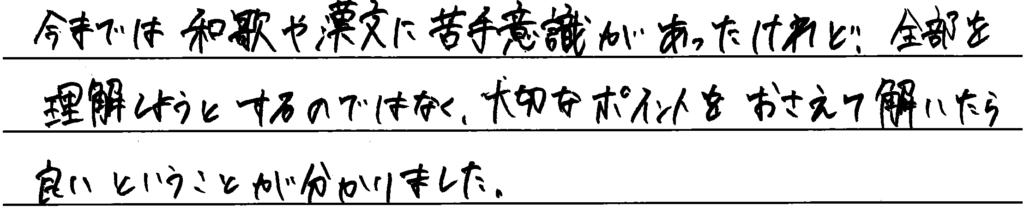 今までは和歌や漢文に苦手意識があったけれど、全部を
理解しようとするのではなく、大切なポイントをおさえて解いたら
良いということが分かりました。